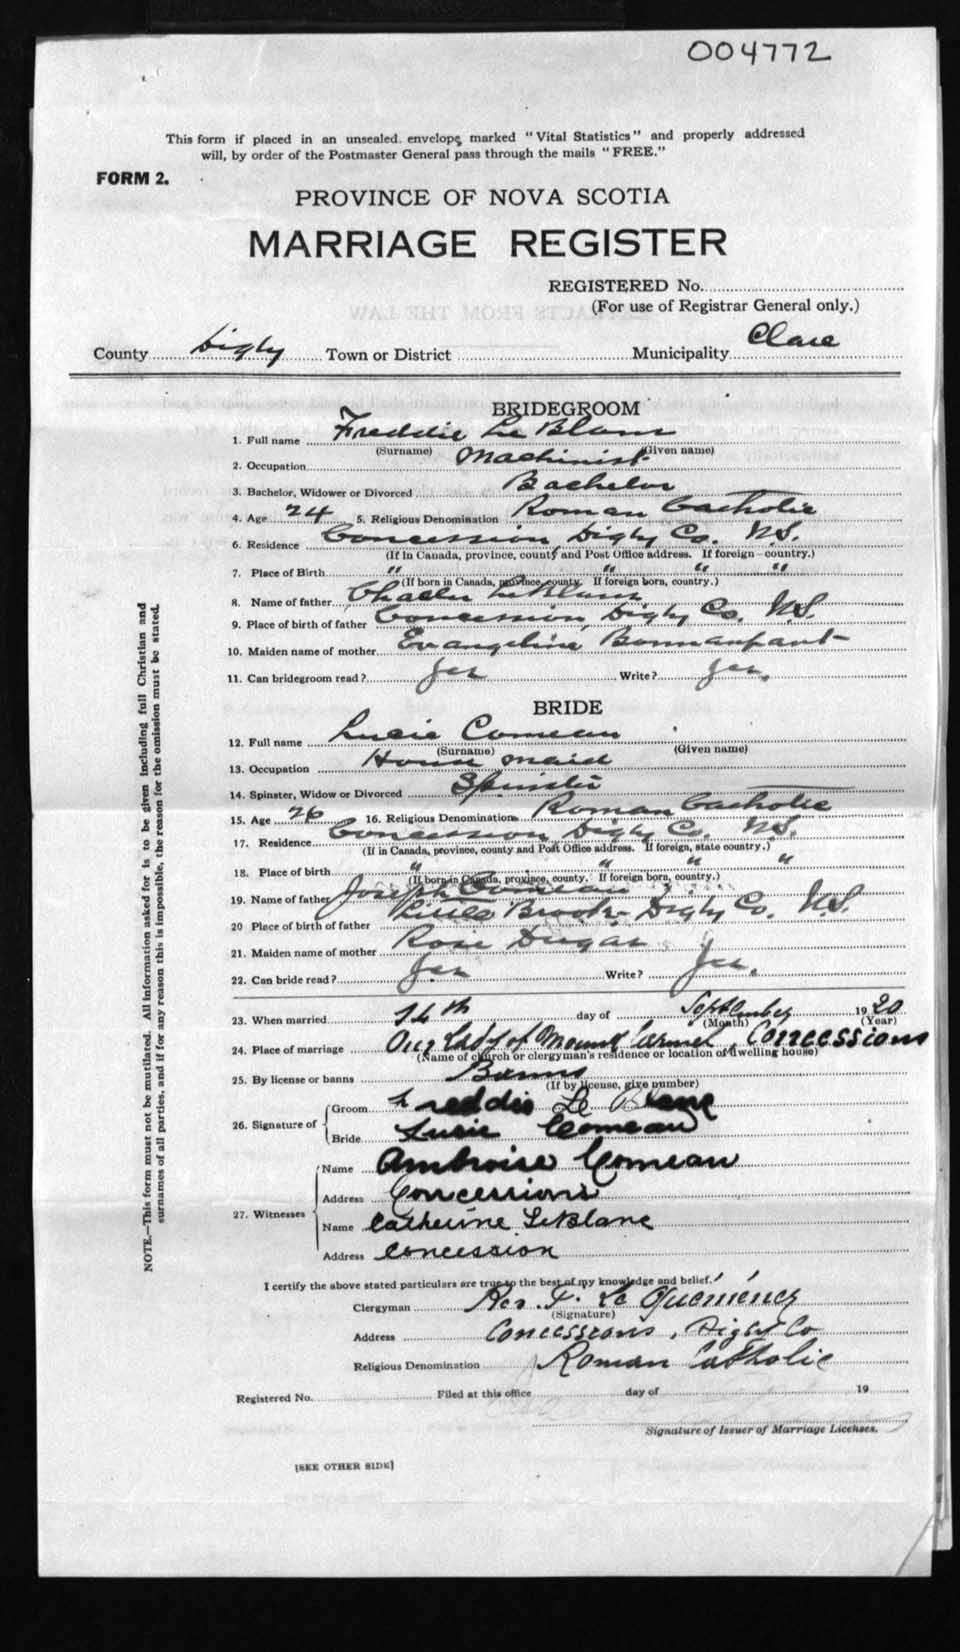 004772
This form if placed in an unsealed envelope marked "Vital Statistics" and properly addressed
will, by order of the Postmaster General pass through the mails "FREE."
FORM 2.
PROVINCE OF NOVA SCOTIA
MARRIAGE REGISTER
REGISTERED No.
(For use of Registrar General only.)
County Digby Town or District Municipality Clare
BRIDEGROOM
1. Full name Freddie Le Blanc
(Surname) (Given name)
2. Occupation Machinist
3. Bachelor, Widower or Divorced Bachelor
4. Age 24 5. Religious Denomination Roman Catholic
6. Residence Concession Digby Co. N.S.
(If in Canada, province, county and Post Office address. If foreign—country.)
7. Place of Birth " " " "
(If born in Canada, province, county. If foreign born, country.)
8. Name of father LeBlanc
9. Place of birth of father Concession, Digby Co. N.S.
10. Maiden name of mother Evangeline
11. Can bridegroom read? Yes Write? Yes.
BRIDE
12. Full name Lucie Comeau
(Surname) (Given name)
13. Occupation House maid
14. Spinster, Widow or Divorced Spinster
15. Age 26 16. Religious Denomination Roman Catholic
17. Residence Concession Digby Co. N.S.
(If in Canada, province, county and Post Office address. If foreign, state country.)
18. Place of birth " " " "
(If born in Canada, province, county. If foreign born, country.)
19. Name of father Joseph Comeau
20 Place of birth of father Little Brook Digby Co. N.S.
21. Maiden name of mother Rosie Dugas
22. Can bride read? Yes Write? Yes.
23. When married 14th day of September 1920
(Month) (Year)
24. Place of marriage Our Lady of Mount Carmel, Concessions
(Name of church or clergyman's residence or location of dwelling house)
25. By license or banns Banns
(If by license, give number)
26. Signature of
Groom Freddie Le Blanc
Bride Lucie Comeau
27. Witnesses
Name Ambroise Comeau
Address Concessions
Name Catherine LeBlanc
Address Concession
I certify the above stated particulars are true to the best of my knowledge and belief.
Clergyman Rev. F. Le Quéménér
(Signature)
Address Concessions, Digby Co
Religious Denomination Roman Catholic
Registered No. Filed at this office day of 19
Signature of Issuer of Marriage Licenses.
[SEE OTHER SIDE]
NOTE.—This form must not be mutilated. All information asked for is to be given including full Christian and
surnames of all parties, and if for any reason this is impossible, the reason for the omission must be stated.